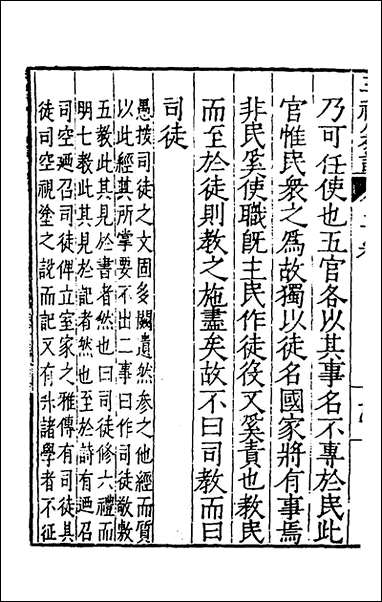 乃可任使也五官各以其事名不專於民此
官惟民衆之爲故獨以徒名國家將有事焉
非民奚使職旣主民作徒役又奚責也教民
而至於徒則教之施盡矣故不曰司教而曰
司徒
愚按司徒之文固多闕遺然参之他經而質
以此經其所掌要不出二事曰作司徒敬敷
五教此其見於書者然也曰司徒修六禮而
明七教此其見於記者然也至於詩有廼召
司空廼召司徒俾立室家之雅傳有司徒具
徒司空視塗之説而記又有升諸學者不征